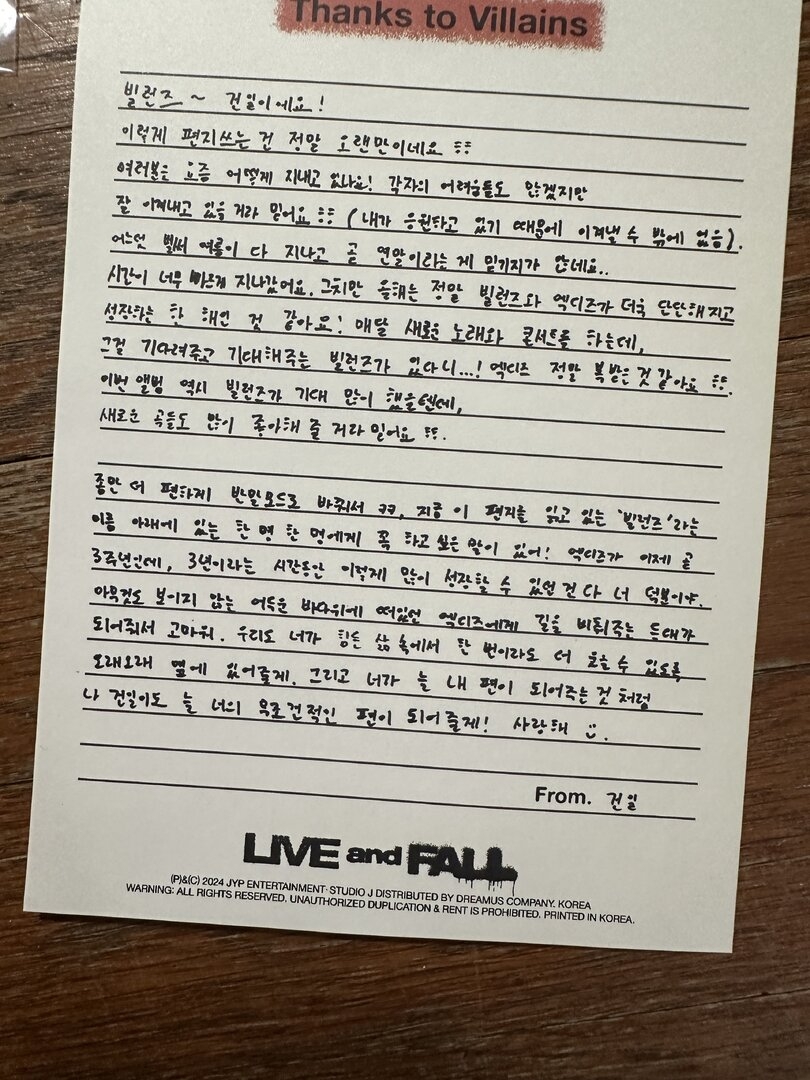 Thanks to Villains
빌런즈 ~ 건일이에요!
이렇게 편지쓰는 건 정말 오랜만이네요 ㅎㅎ
여러분은 요즘 어떻게 지내고 있나요! 각자의 어려움들도 많겠지만
잘 이겨내고 있을 거라 믿어요 ㅎㅎ (내가 응원하고 있기 때문에 이겨낼 수 밖에 없음).
어느덧 벌써 여름이 다 지나고 곧 연말이라는 게 믿기지가 않네요..
시간이 너무 빠르게 지나갔어요. 그치만 올해는 정말 빌런즈와 엑디즈가 더욱 단단해지고
성장하는 한 해인 것 같아요! 매달 새로운 노래와 콘서트를 하는데,
그걸 기다려주고 기대해주는 빌런즈가 있다니...! 엑디즈 정말 복받은 것 같아요 ㅎㅎ.
이번 앨범 역시 빌런즈가 기대 많이 했을텐데,
새로운 곡들도 많이 좋아해 줄 거라 믿어요 ㅎㅎ.
좀만 더 편하게 반말모드로 바꿔서 ㅋㅋ, 지금 이 편지를 읽고 있는 '빌런즈'라는
이름 아래에 있는 한 명 한 명에게 꼭 하고 싶은 말이 있어! 엑디즈가 이제 곧
3주년인데, 3년이라는 시간동안 이렇게 많이 성장할 수 있었던 건 다 너 덕분이야.
아무것도 보이지 않는 어두운 바다위에 떠있던 엑디즈에게 길을 비춰주는 등대가
되어줘서 고마워. 우리도 너가 힘든 삶 속에서 한 번이라도 더 웃을 수 있도록,
오래오래 옆에 있어줄게. 그리고 너가 늘 내 편이 되어주는 것 처럼
나 건일이도 늘 너의 무조건적인 편이 되어줄게! 사랑해 ㅎ.
From. 건일
LIVE and FALL
(P)&(C) 2024 JYP ENTERTAINMENT· STUDIO J DISTRIBUTED BY DREAMUS COMPANY. KOREA
WARNING: ALL RIGHTS RESERVED. UNAUTHORIZED DUPLICATION & RENT IS PROHIBITED. PRINTED IN KOREA.